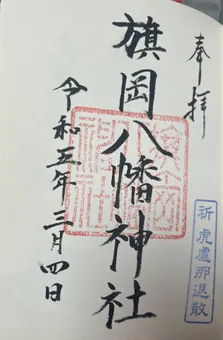 奉拝
旗岡八幡神社
令和五年三月四日
祈 虎慮那退散